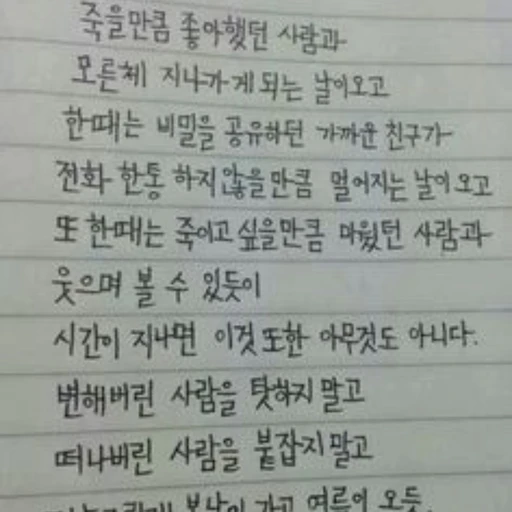 죽을만큼 좋아했던 사람과
모른체 지나가게 되는 날이오고
한때는 비밀을 공유하던 가까운 친구가
전화 한통 하지않을만큼 멀어지는 날이오고
또 한때는 죽이고싶을만큼 미웠던 사람과
웃으며 볼 수 있듯이
시간이 지나면 이것또한 아무것도 아니다.
변해버린 사람을 탓하지 말고
떠나버린 사람을 붙잡지말고
봄날이 가고 여름이 오듯